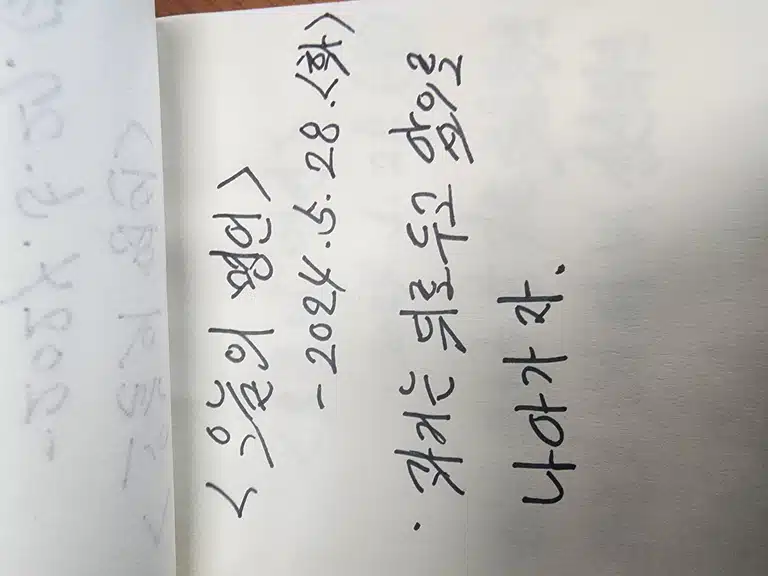 <오늘의 명언>
-2024.5.28.<화>
· 과거는 뒤로 두고 앞으로
나아가자.